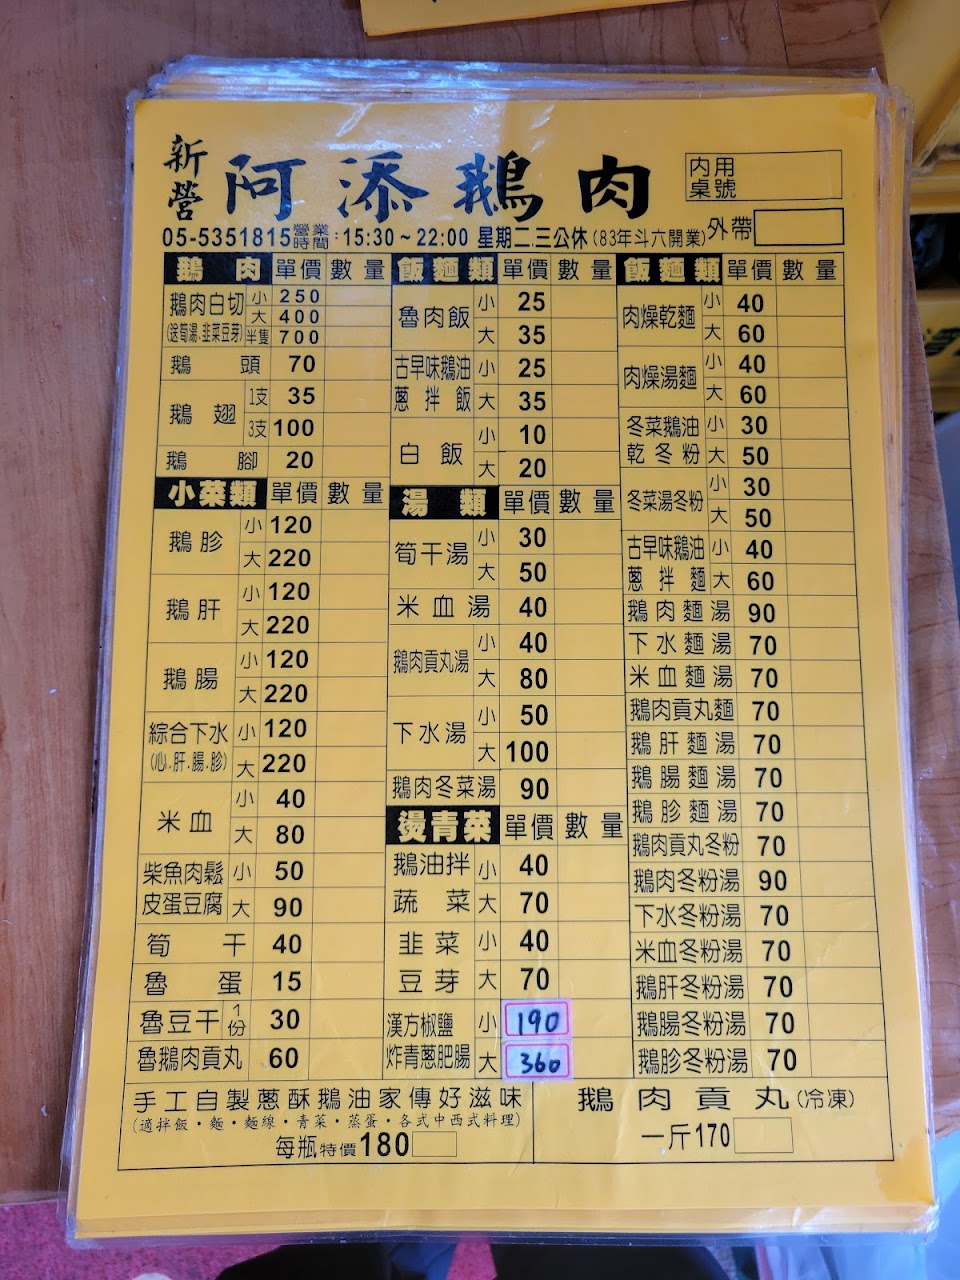 新營 阿添鵝肉
內用桌號
05-5351815 營業時間:15:30~22:00 星期二.三公休(83年斗六開業) 外帶
鵝肉 單價 數量
鵝肉白切 小 250
(送筍湯.韭菜豆芽) 大 400
半隻 700
鵝頭 70
鵝翅 1支 35
3支 100
鵝腳 20
小菜類 單價 數量
鵝胗 小 120
大 220
鵝肝 小 120
大 220
鵝腸 小 120
大 220
綜合下水 小 120
(心.肝.腸.胗) 大 220
米血 小 40
大 80
柴魚肉鬆 小 50
皮蛋豆腐 大 90
筍干 40
魯蛋 15
魯豆干 1份 30
魯鵝肉貢丸 60
飯麵類 單價 數量
魯肉飯 小 25
大 35
古早味鵝油 小 25
蔥拌飯 大 35
白飯 小 10
大 20
湯類 單價 數量
筍干湯 小 30
大 50
米血湯 40
鵝肉貢丸湯 小 40
大 80
下水湯 小 50
大 100
鵝肉冬菜湯 90
燙青菜 單價 數量
鵝油拌 小 40
蔬菜 大 70
韭菜 小 40
豆芽 大 70
漢方椒鹽 小 190
炸青蔥肥腸 大 360
飯麵類 單價 數量
肉燥乾麵 小 40
大 60
肉燥湯麵 小 40
大 60
冬菜鵝油 小 30
乾冬粉 大 50
冬菜湯冬粉 小 30
大 50
古早味鵝油 小 40
蔥拌麵 大 60
鵝肉麵湯 90
下水麵湯 70
米血麵湯 70
鵝肉貢丸麵 70
鵝肝麵湯 70
鵝腸麵湯 70
鵝胗麵湯 70
鵝肉貢丸冬粉 70
鵝肉冬粉湯 90
下水冬粉湯 70
米血冬粉湯 70
鵝肝冬粉湯 70
鵝腸冬粉湯 70
鵝胗冬粉湯 70
手工自製蔥酥鵝油家傳好滋味
(適拌飯・麵・麵線・青菜・蒸蛋・各式中西式料理)
每瓶特價180
鵝肉貢丸(冷凍)
一斤170